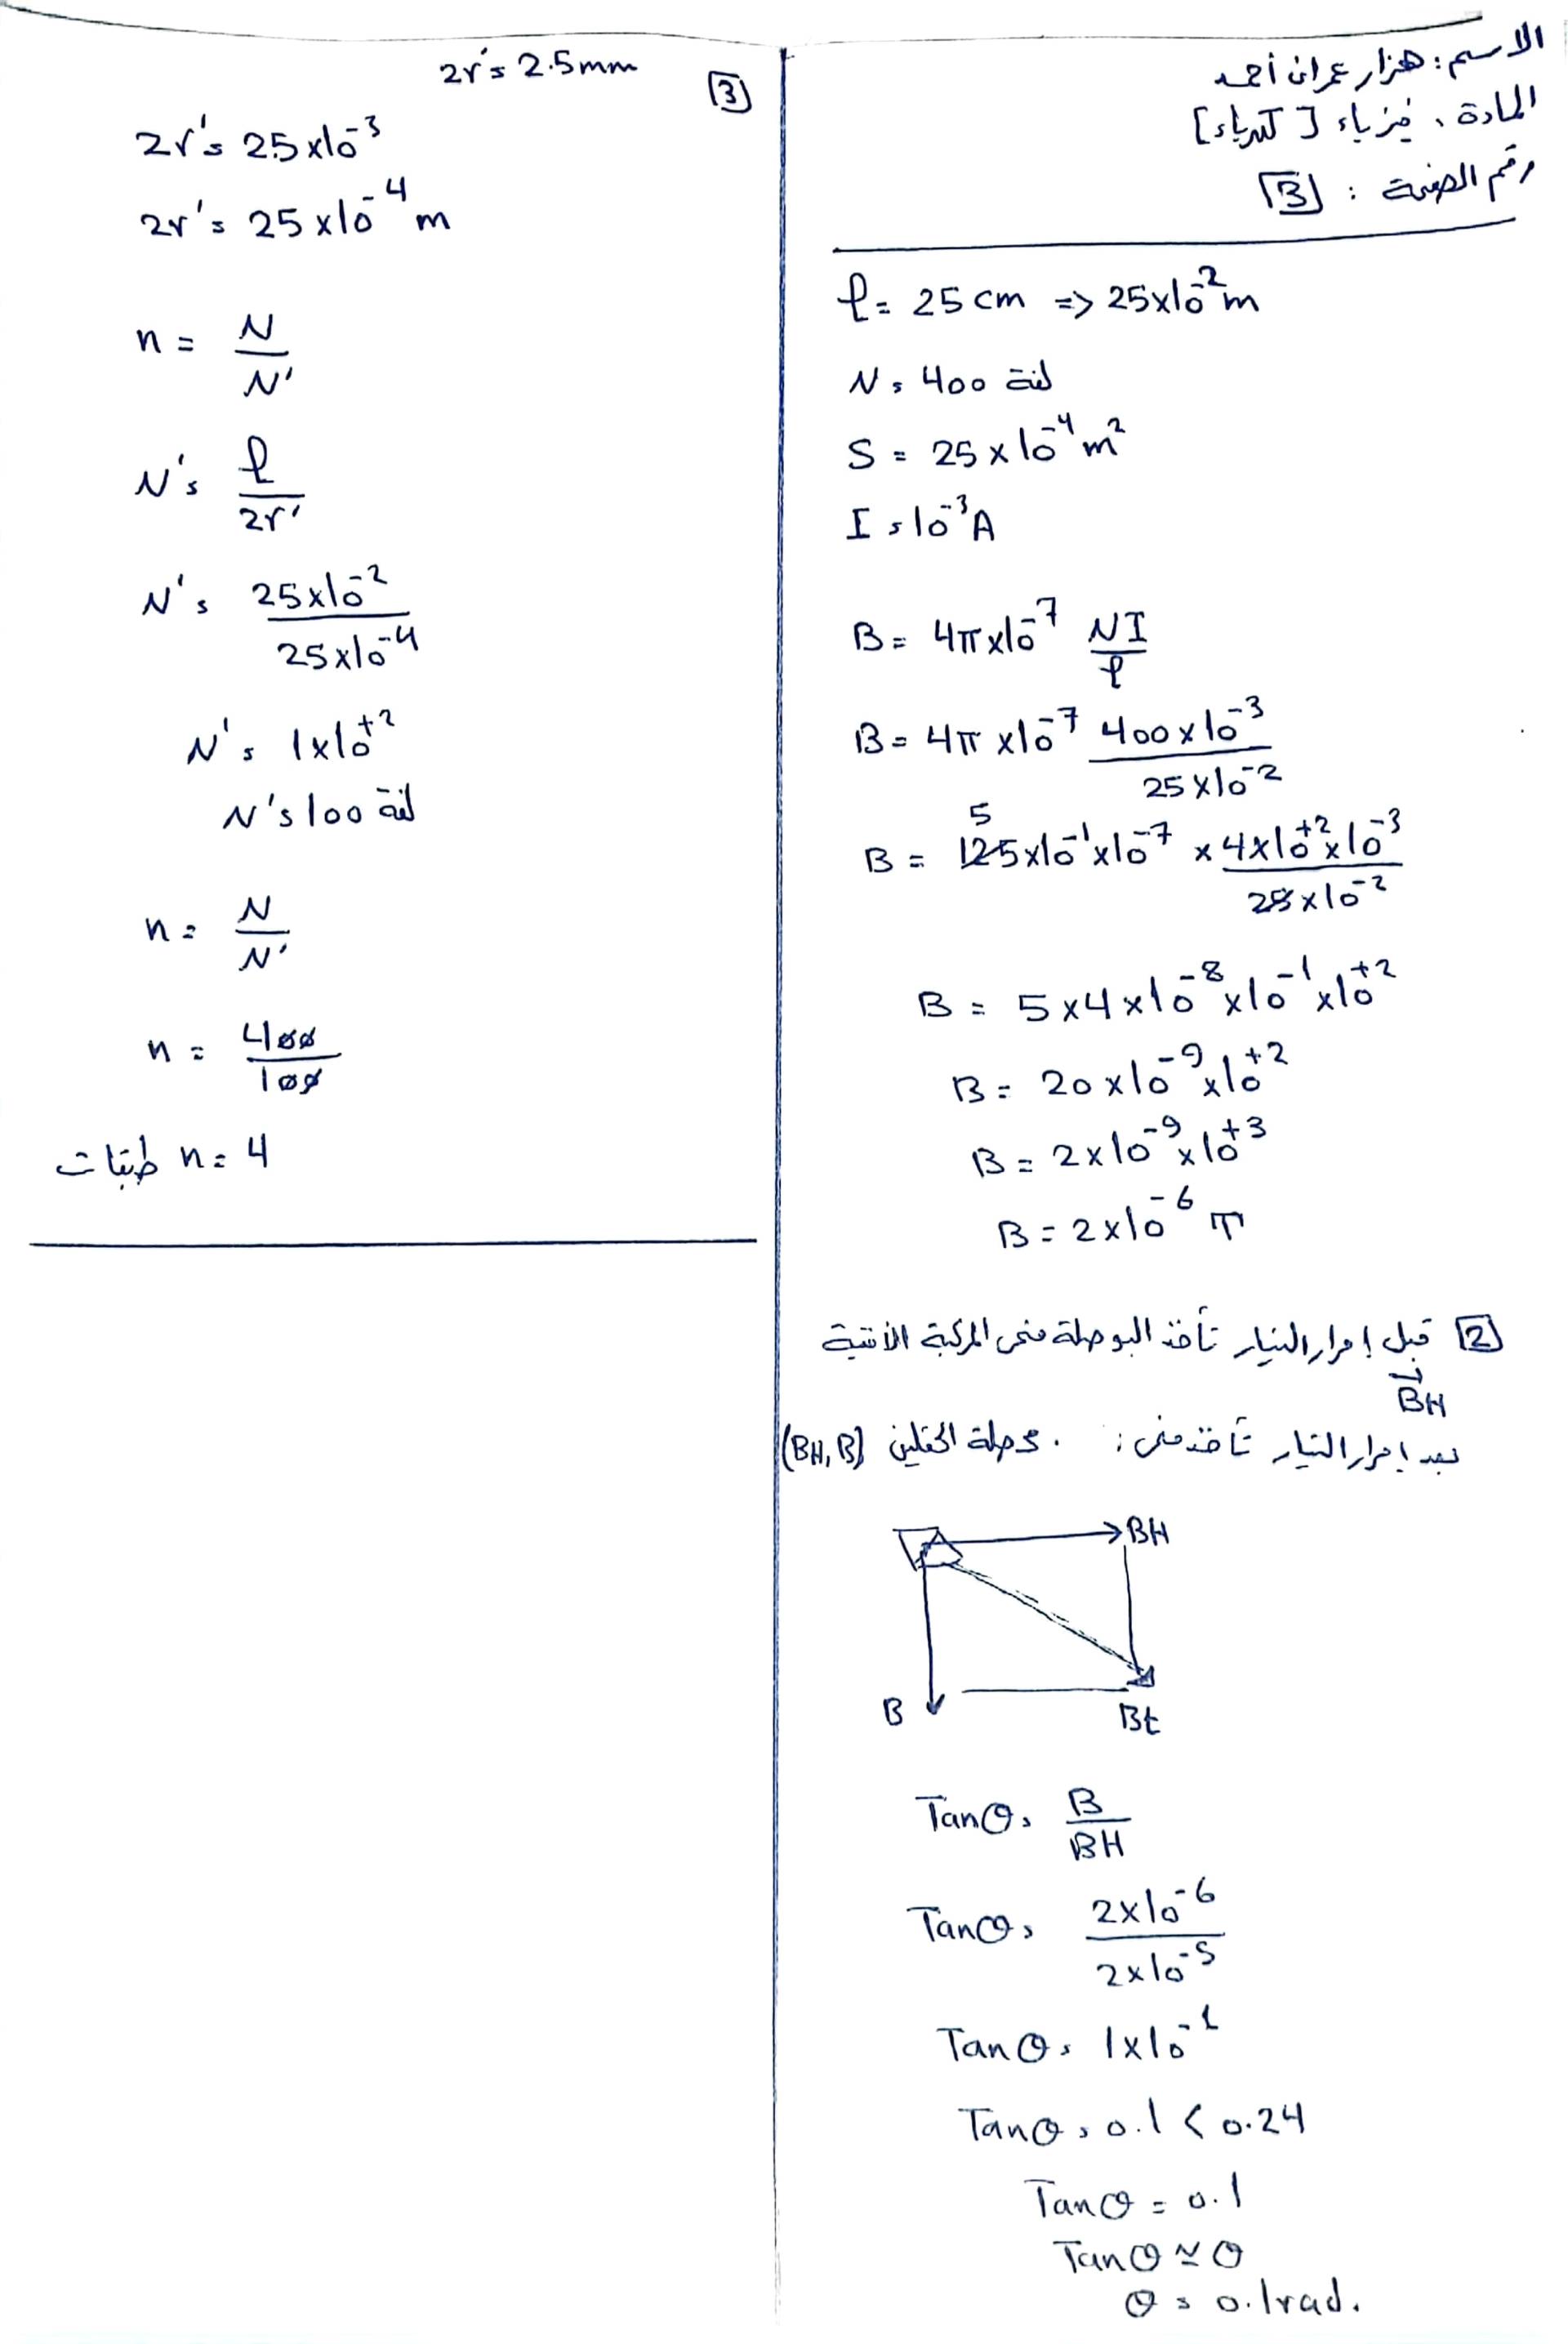 الاسم: هزار عمران أحمد
المادة: فيزياء [كهرباء]
رقم الصفحة: [3]
ℓ = 25 cm => 25×10⁻² m
N = 400 لفة
S = 25 × 10⁻⁴ m²
I = 10⁻³ A
B = 4π×10⁻⁷ NI/ℓ
B = 4π ×10⁻⁷ (400 × 10⁻³)/(25 × 10⁻²)
5
B = 125×10⁻¹×10⁻⁷ × (4×10⁺²×10⁻³)/(25×10⁻²)
B = 5×4×10⁻⁸×10⁻¹×10⁺²
B = 20×10⁻⁹×10⁺²
B = 2×10⁻⁹×10⁺³
B = 2×10⁻⁶ T
[2] قبل إمرار التيار تأخذ البوصلة منحى المركبة الأفقية
BH
بعد إمرار التيار تأخذ منحى: محصلة الحقلين (BH, B)
BH
B
Bt
Tanθ = B/BH
Tanθ = (2×10⁻⁶)/(2×10⁻⁵)
Tanθ = 1×10⁻¹
Tanθ = 0.1 < 0.24
Tanθ = 0.1
Tanθ ≃ θ
θ = 0.1rad.
[3] 2r' = 2.5mm
2r' = 2.5×10⁻³
2r' = 25×10⁻⁴ m
n = N/N'
N' = ℓ/2r'
N' = (25×10⁻²)/(25×10⁻⁴)
N' = 1×10⁺²
N' = 100 لفة
n = N/N'
n = 400/100
n = 4 طبقات